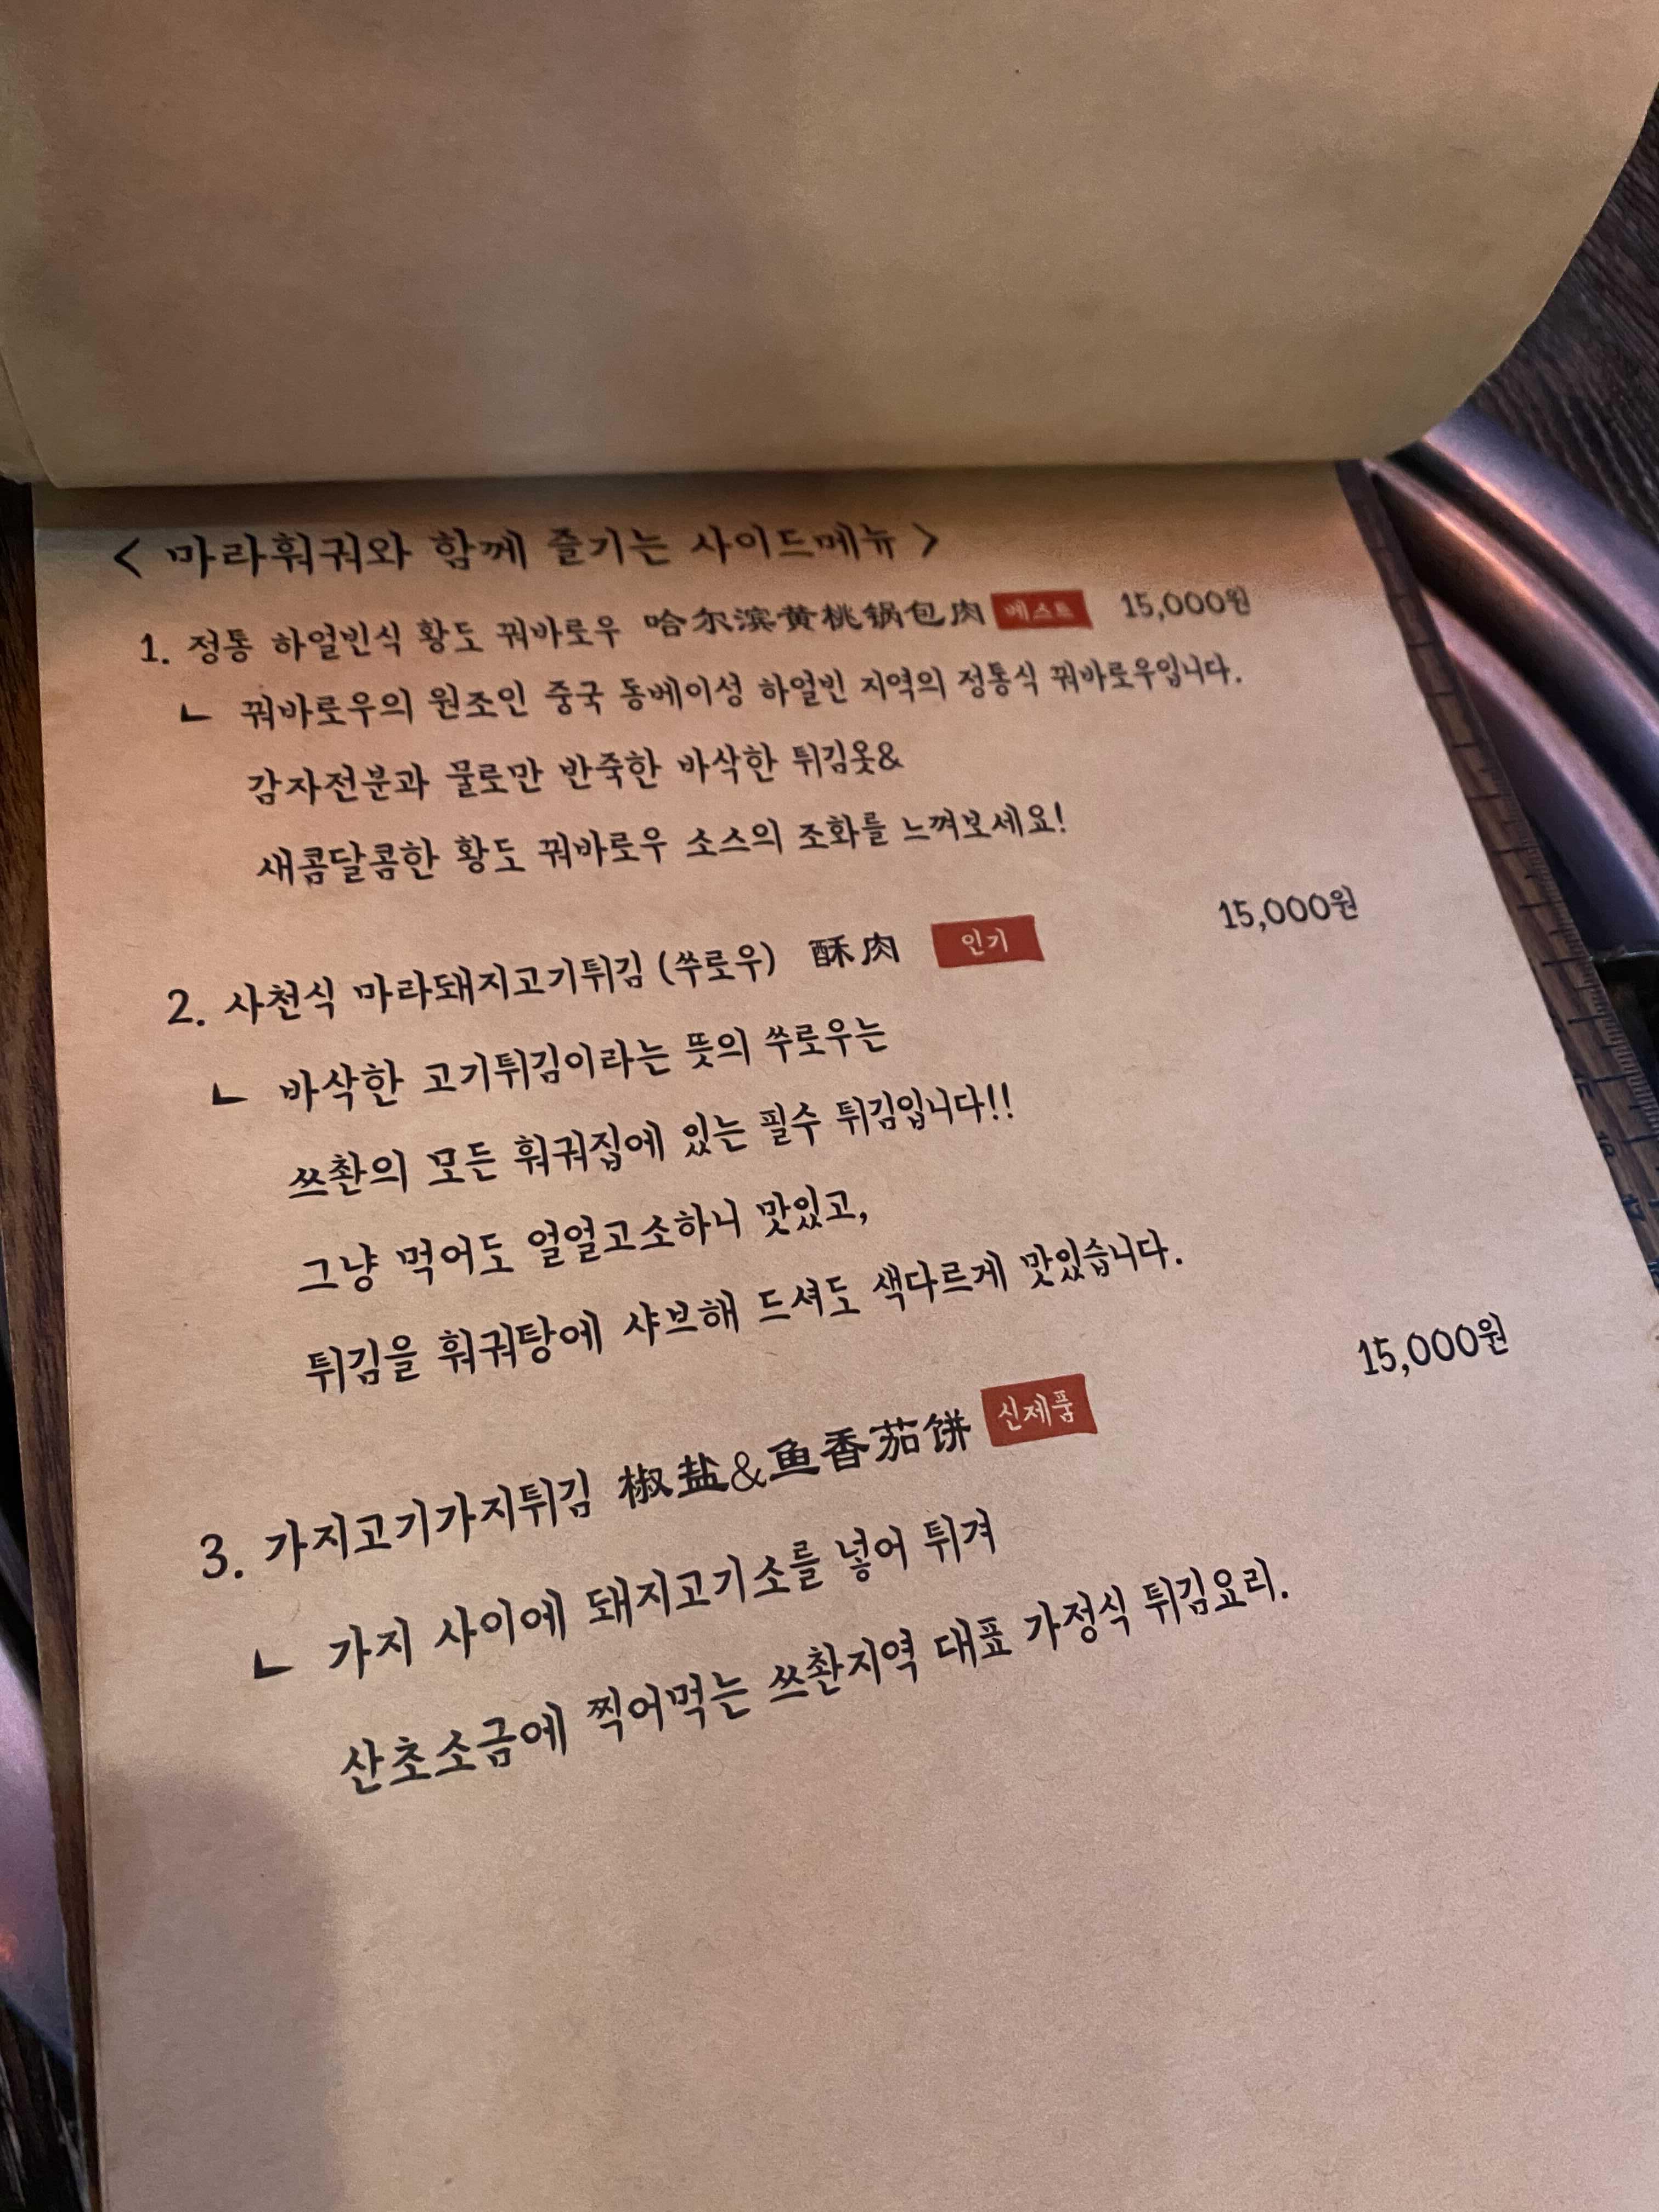 < 마라훠궈와 함께 즐기는 사이드메뉴 >
1. 정통 하얼빈식 황도 꿔바로우 哈尔滨黄桃锅包肉 베스트 15,000원
ㄴ 꿔바로우의 원조인 중국 동베이성 하얼빈 지역의 정통식 꿔바로우입니다.
감자전분과 물로만 반죽한 바삭한 튀김옷&
새콤달콤한 황도 꿔바로우 소스의 조화를 느껴보세요!
2. 사천식 마라돼지고기튀김 (쑤로우) 酥肉 인기 15,000원
ㄴ 바삭한 고기튀김이라는 뜻의 쑤로우는
쓰촨의 모든 훠궈집에 있는 필수 튀김입니다!!
그냥 먹어도 얼얼고소하니 맛있고,
튀김을 훠궈탕에 샤브해 드셔도 색다르게 맛있습니다.
3. 가지고기가지튀김 椒盐&鱼香茄饼 신제품 15,000원
ㄴ 가지 사이에 돼지고기소를 넣어 튀겨
산초소금에 찍어먹는 쓰촨지역 대표 가정식 튀김요리.